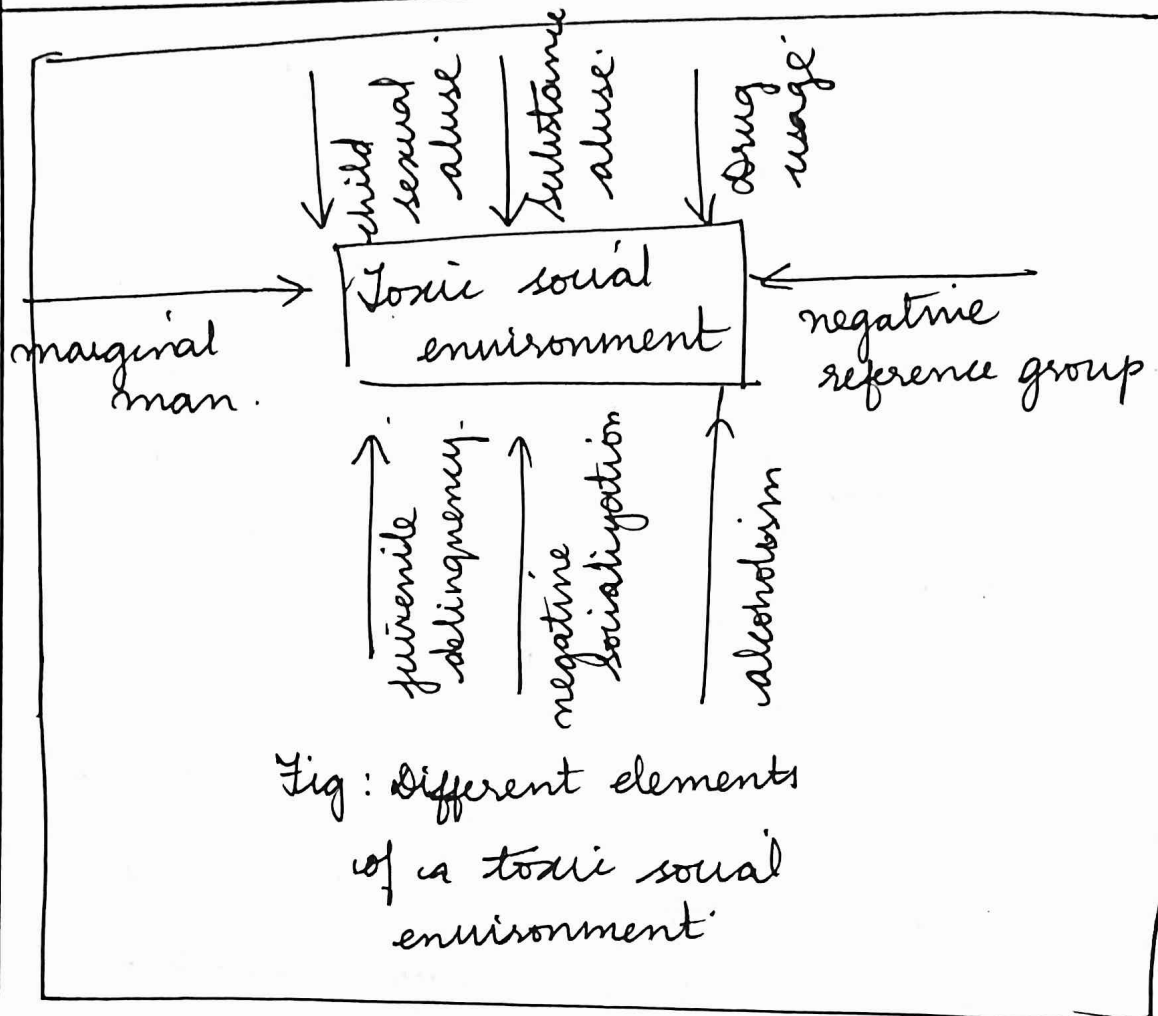 child
sexual
abuse
substance
abuse
Drug
usage
Toxic social
environment
marginal
man.
negative
reference group
juvenile
delinquency.
negative
socialization
alcoholism
Fig : Different elements
of a toxic social
environment